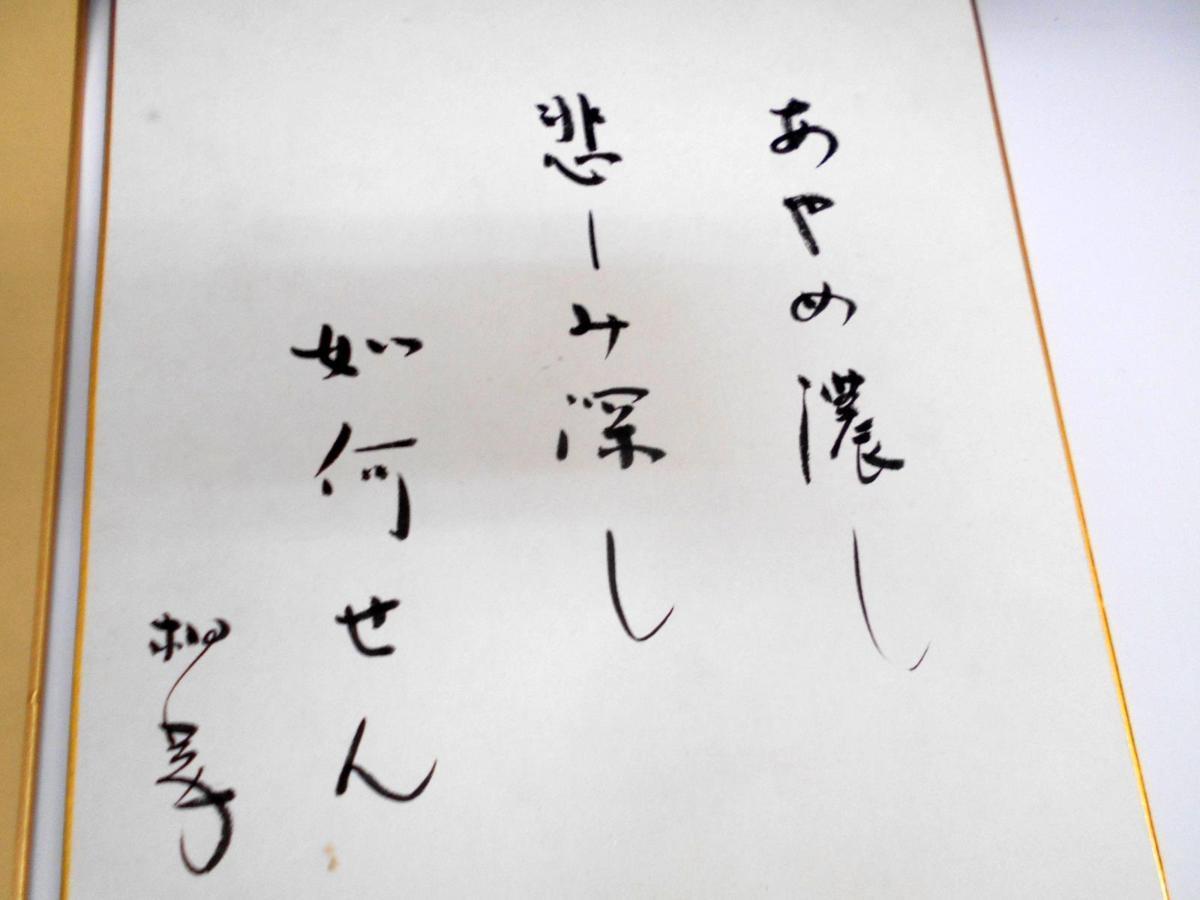 あやめ濃し
悲しみ深し
如何せん